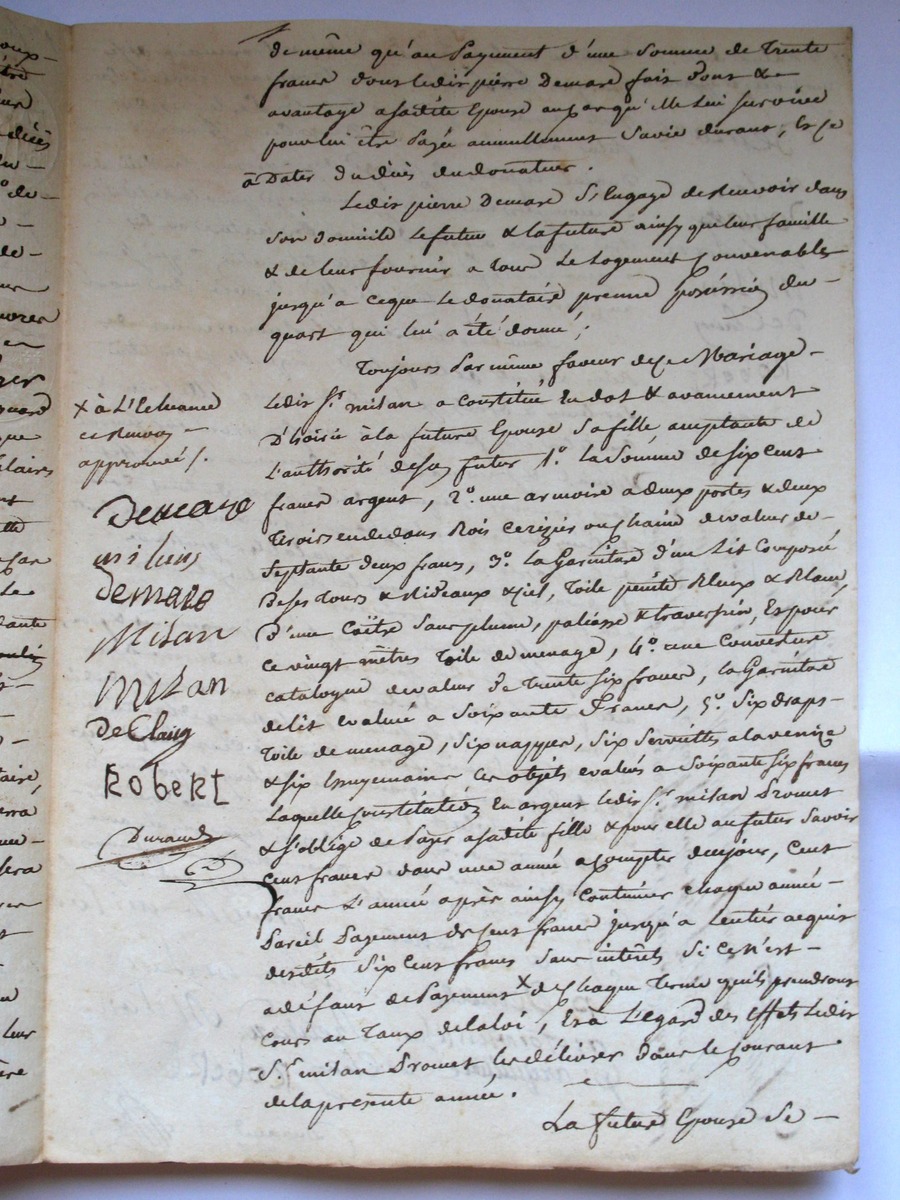 de même qu'au payement d'une somme de trente
francs dont ledit pierre Demare fait dont &
avantage a sadite Epouse au cas qu'elle lui survive
pour lui être payée annuellement sa vie durant, et ce
à Dater du décès du donateur.
Ledit pierre Demare S'engage de recevoir dans
son domicile le futur & la future ainsy que leur famille
& de leur fournir a tous le logement convenable
jusqu'a ceque le donataire prenne possession du
quart qui lui a été donné;
Toujours par même faveur de ce Mariage
ledit Sr. milan a constitué en dot & avancement
D'hoirie à la future Epouse sa fille acceptante de
l'authorité de son futur 1º. la somme de six cent
francs argent, 2º. une armoire a deux portes & deux
tiroirs en dedans Bois cerizier ou chaine de valeur de
septante deux francs, 3º. la Garniture d'un lit composé
de ses tours & rideaux & ciel, toile peinte Bleux & Blanc,
d'une Coëtre sans plume, paliasse & traversin, Et pour
ce vingt mêtres toile de menage, 4º. une couverture
catalogue de valeur de trente six francs, la Garniture
de lit evaluée a soixante francs, 5º. Six draps
toile de menage, six nappes, six serviettes a la venize
& six Essuyemains ces objets evalués a soixante six francs
Laquelle constitution en argent ledit Sr. milan Promet
& s'oblige de payer a sadite fille & pour elle au futur savoir
cent francs dans une année a compter de ce jour, cent
francs l'année après ainsy continuer chaque année
pareil payement de cent francs jusqu'a l'entier acquit
desdits six cent francs sans intérêts si ce n'est
a défaut de payement x de chaque terme qu'ils prendront
cours au taux de la loi, Et à l'égard des effets ledit
Sr. milan Promet les délivrer dans le courant
de la presente année.
La future Epouse Se
x à l'Echéance
ce renvoy
approuvé /.
Demare
milan
demare
Milan
Milan
De Clain
Robert
Durand